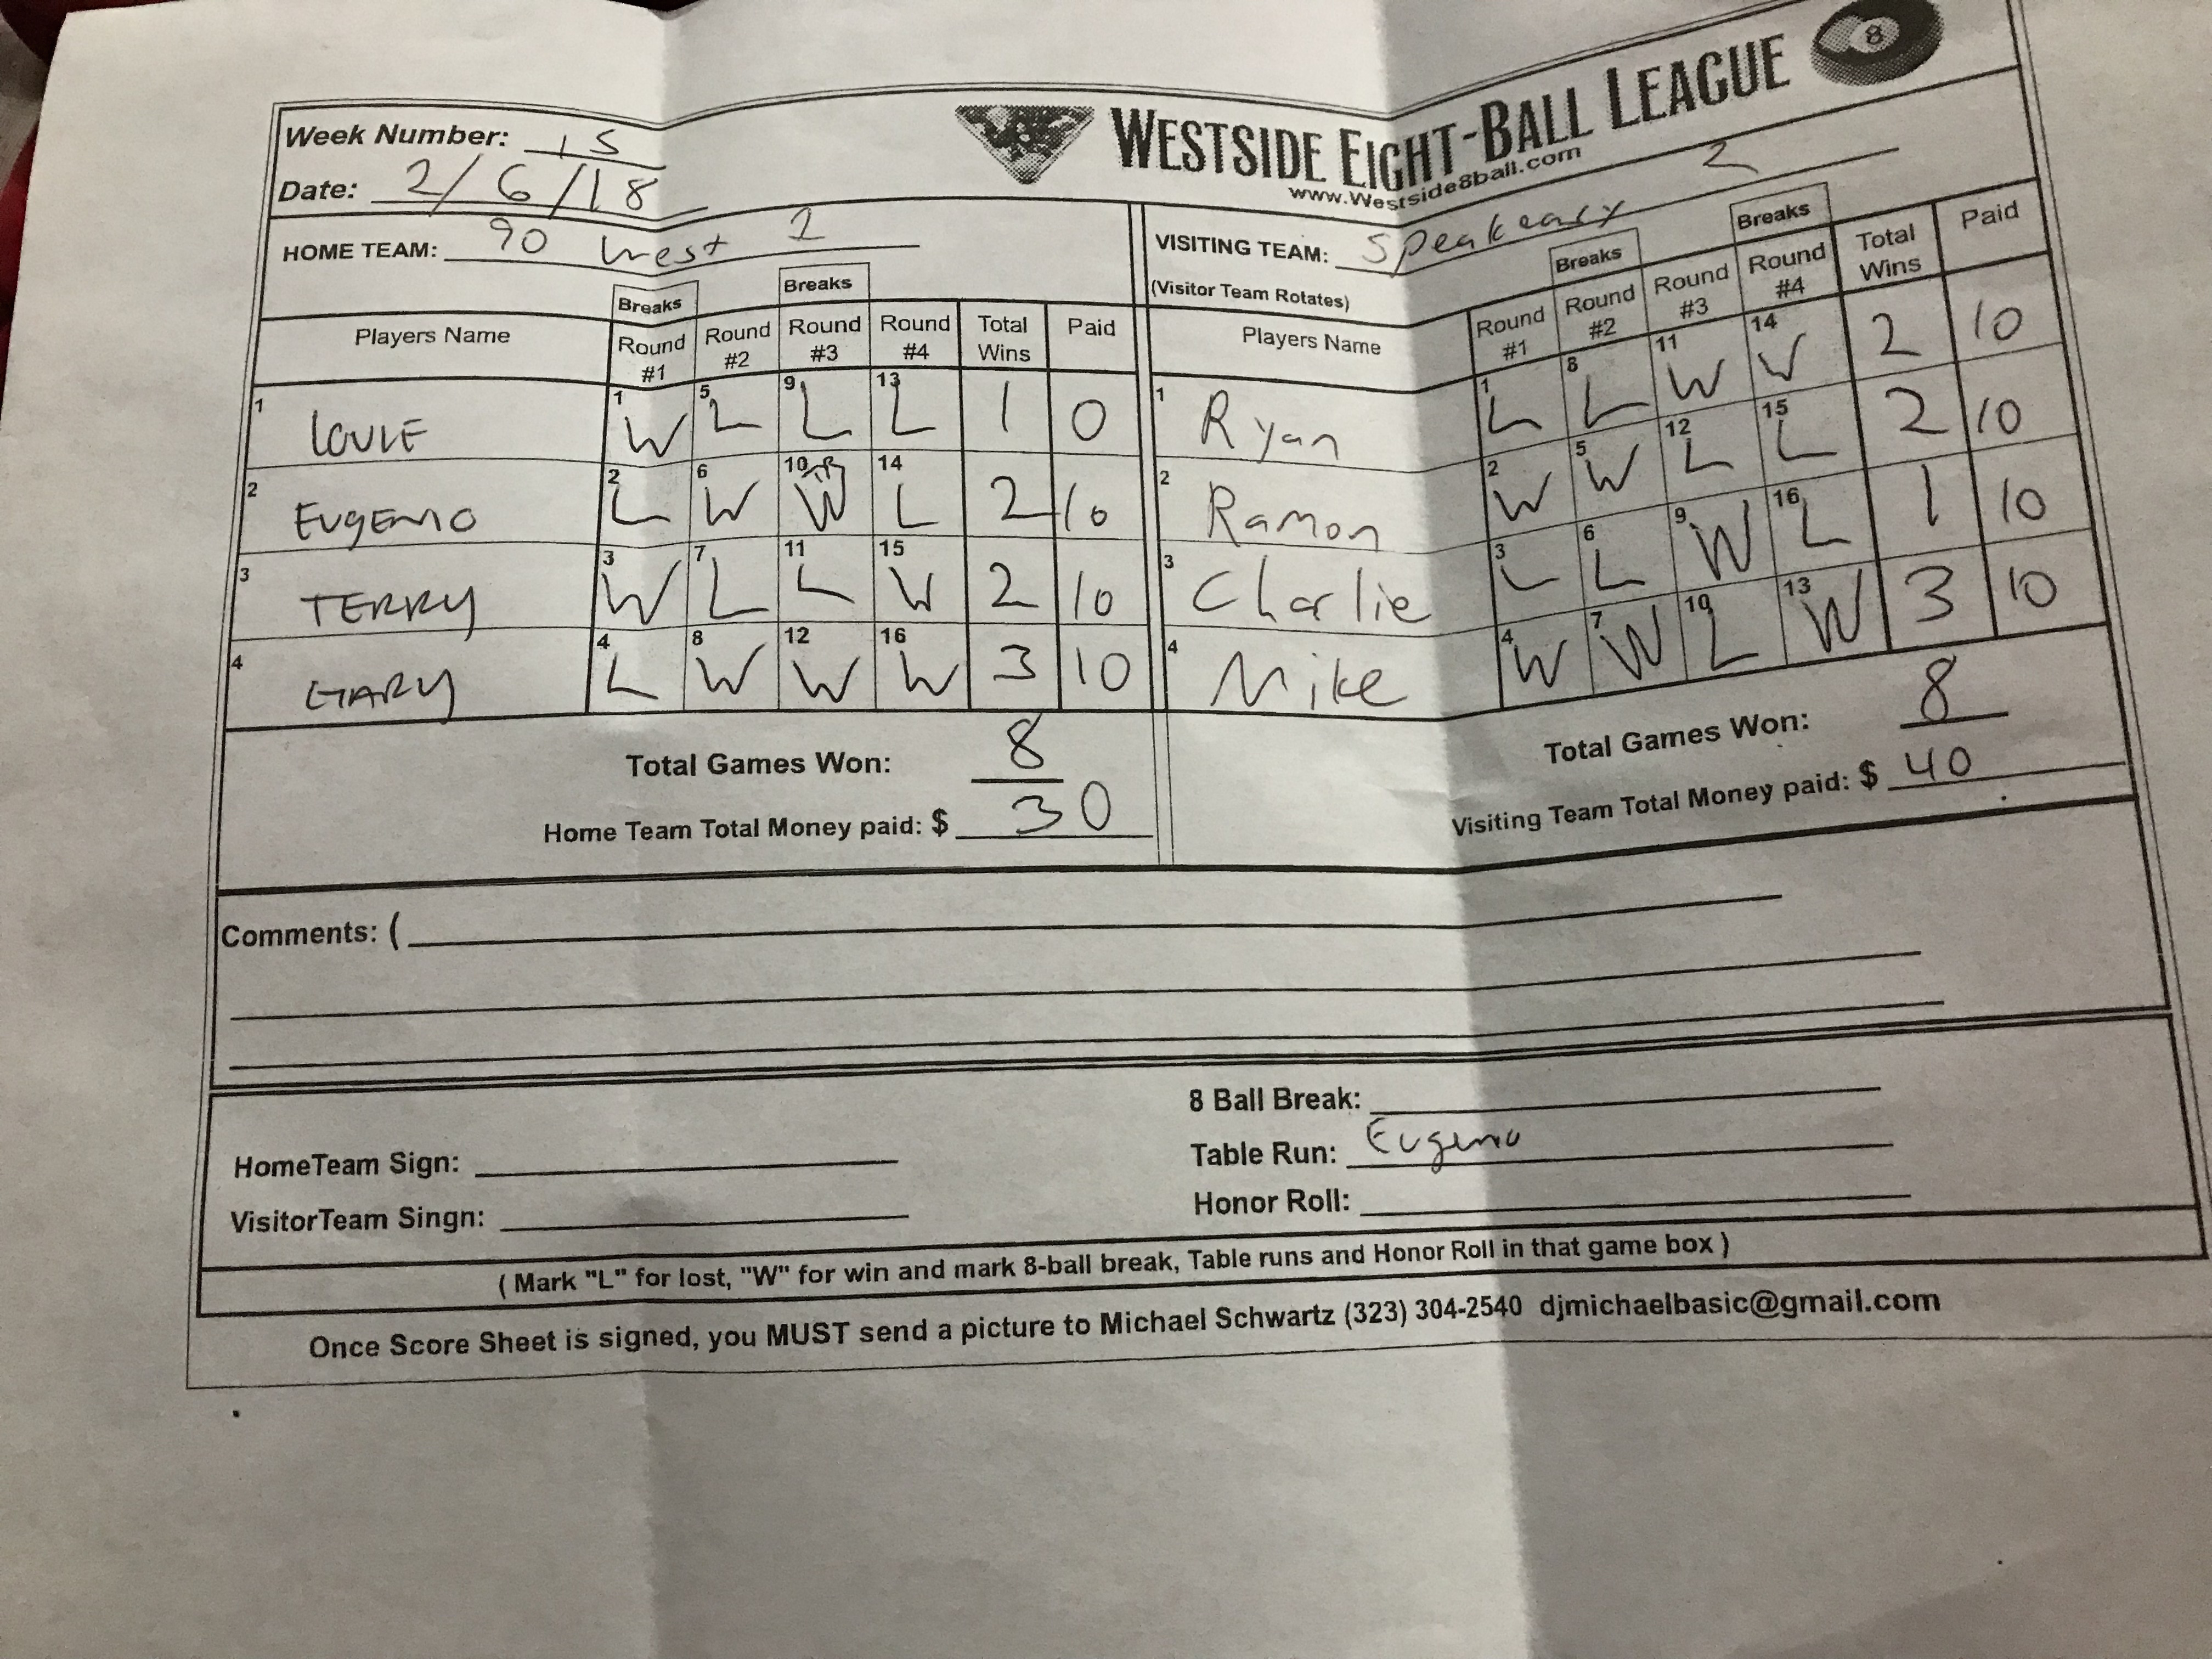 WESTSIDE EIGHT-BALL LEAGUE 8
www.Westside8ball.com
Week Number: 15
Date: 2/6/18
HOME TEAM: 90 West 2
VISITING TEAM: Speakeasy 2
(Visitor Team Rotates)
Breaks Breaks Breaks Breaks
Players Name Round #1 Round #2 Round #3 Round #4 Total Wins Paid Players Name Round #1 Round #2 Round #3 Round #4 Total Wins Paid
1 LOUIE 1 W 5 L 9 L 13 L 1 0 1 Ryan 1 L 8 L 11 W 14 W 2 10
2 EUgENIO 2 L 6 W 10 TR W 14 L 2 10 2 Ramon 2 W 5 W 12 L 15 L 2 10
3 TERRY 3 W 7 L 11 L 15 W 2 10 3 Charlie 3 L 6 L 9 W 16 L 1 10
4 GARY 4 L 8 W 12 W 16 W 3 10 4 Mike 4 W 7 W 10 L 13 W 3 10
Total Games Won: 8 Total Games Won: 8
Home Team Total Money paid: $ 30 Visiting Team Total Money paid: $ 40
Comments: (
8 Ball Break:
HomeTeam Sign: Table Run: Eugenio
VisitorTeam Singn: Honor Roll:
( Mark "L" for lost, "W" for win and mark 8-ball break, Table runs and Honor Roll in that game box )
Once Score Sheet is signed, you MUST send a picture to Michael Schwartz (323) 304-2540 djmichaelbasic@gmail.com